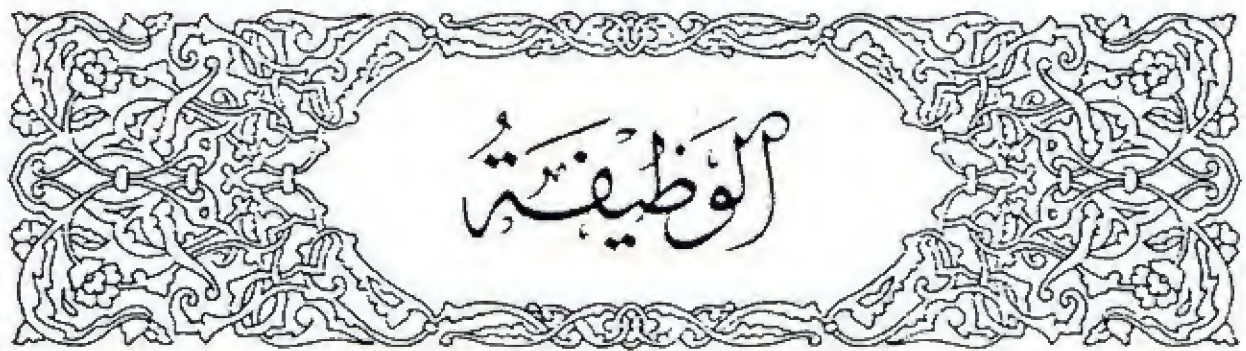 الوَظِيفَةُ